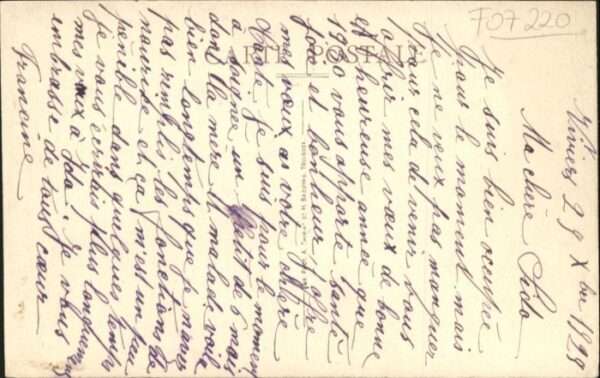 F07220
CARTE POSTALE
Viviers 29 Xbre 1929
Ma chère Lida
Je suis bien occupée
pour le moment mais
je ne veux pas manquer
pour cela de venir vous
offrir mes vœux de bonne
et heureuse année que
1930 vous apporte santé
joie et bonheur j'offre
mes vœux à votre chère
je suis pour le moment
à soigner un petit de 6 mois
dont la mère est malade voilà
bien longtemps que je n'avais
pas remplis les fonctions de
nourrice et ça m'est un peu
pénible dans quelques temps
je vous écrirai plus longuement
mes vœux à Ida. Je vous
embrasse de tout cœur
Francine